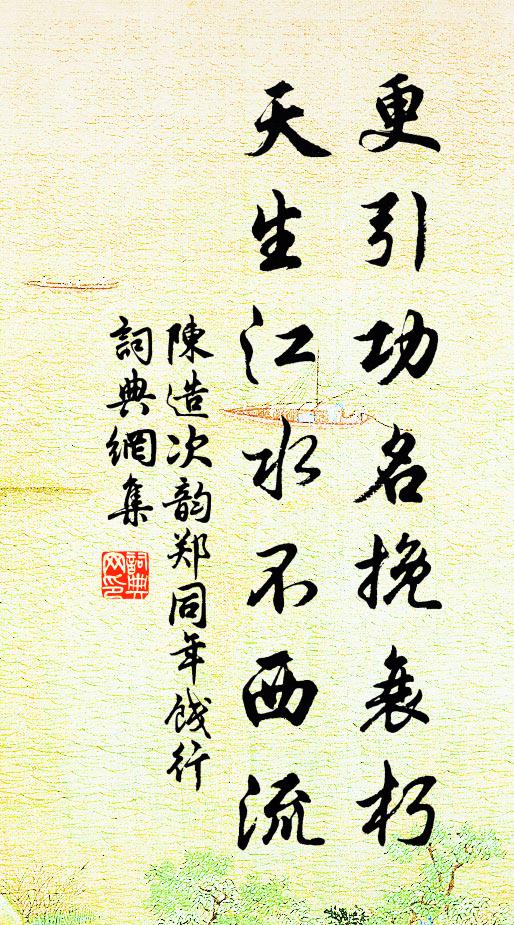 更引功名挽衰朽
天生江水不西流
陳造次韵郑同年饯行
詞典網集
詞典网印